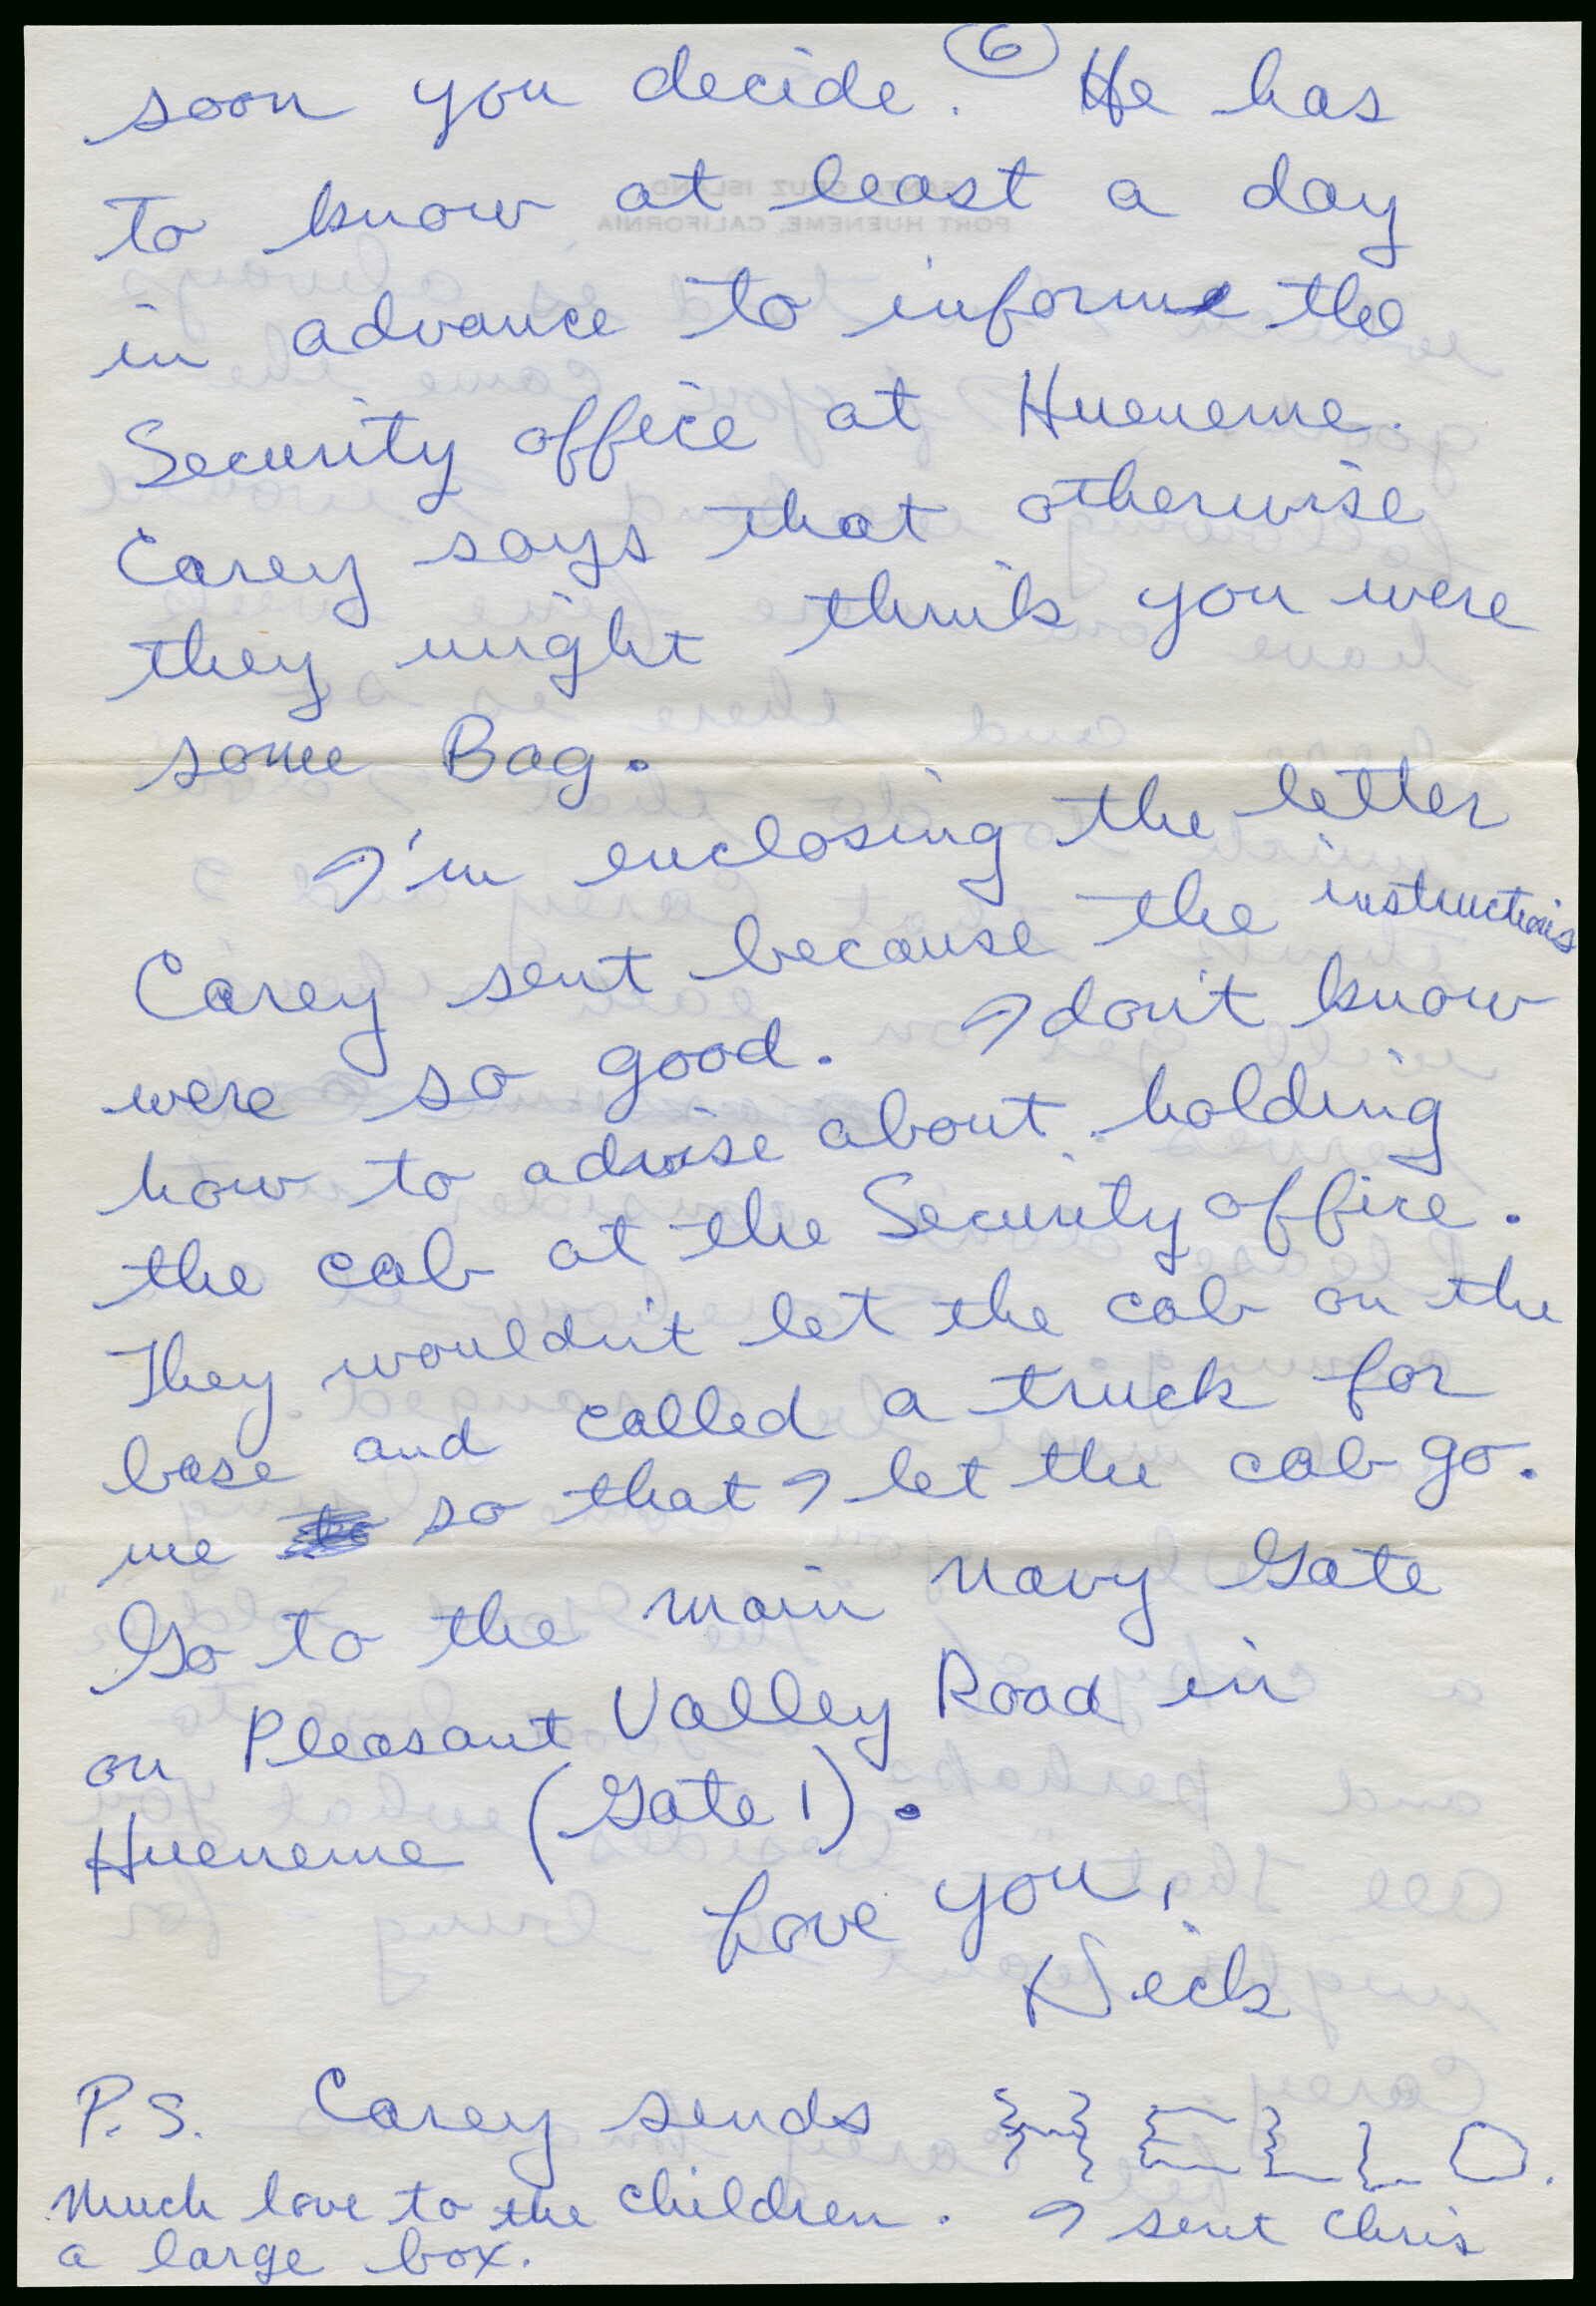 6
soon you decide. He has
to know at least a day
in advance to inform the
Security office at Hueneme.
Carey says that otherwise
they might think you were
some Bag.
I'm enclosing the letter
Carey sent because the instructions
were so good. I don't know
how to advise about holding
the cab at the Security office.
They wouldn't let the cab on the
base and called a truck for
me so that I let the cab go.
Go to the main Navy Gate
on Pleasant Valley Road in
Hueneme (Gate 1).
Love you,
P.S. Carey sends HELLO.
Much love to the children. I sent Chris
a large box.
SANTA CRUZ ISLAND
PORT HUENEME, CALIFORNIA